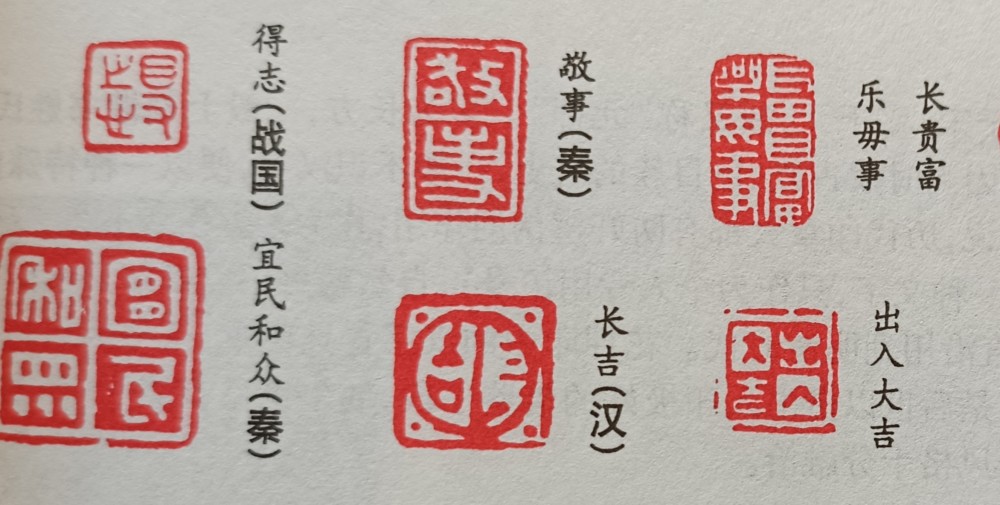 得志（战国）
敬事（秦）
长贵富
乐毋事
宜民和众（秦）
长吉（汉）
出入大吉